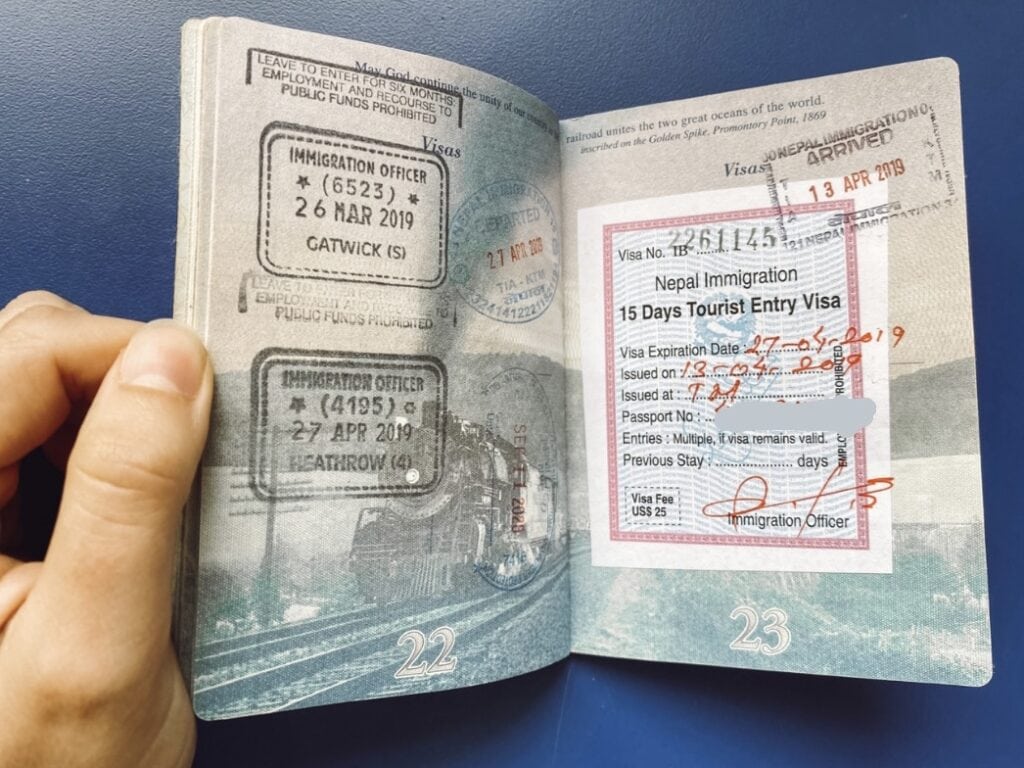 May God continue the unity of our
Visas
LEAVE TO ENTER FOR SIX MONTHS:
EMPLOYMENT AND RECOURSE TO
PUBLIC FUNDS PROHIBITED
IMMIGRATION OFFICER
* (6523) *
26 MAR 2019
GATWICK (S)
DEPARTED
27 APR 2019
TIA - KTM
LEAVE TO ENTER FOR SIX MONTHS
EMPLOYMENT AND
PUBLIC FUNDS PROHIBITED
IMMIGRATION OFFICER
* (4195)
27 APR 2019
HEATHROW (4)
22
railroad unites the two great oceans of the world.
inscribed on the Golden Spike, Promontory Point, 1869
Visas
NEPAL IMMIGRATION
ARRIVED
13 APR 2019
NEPAL IMMIGRATION
Visa No. IB 2261145
Nepal Immigration
15 Days Tourist Entry Visa
Visa Expiration Date : 27-04-2019
Issued on 13-04-2019
Issued at :
Passport No :
Entries : Multiple, if visa remains valid.
Previous Stay : .................... days
PROHIBITED
Visa Fee
US$ 25
Immigration Officer
23